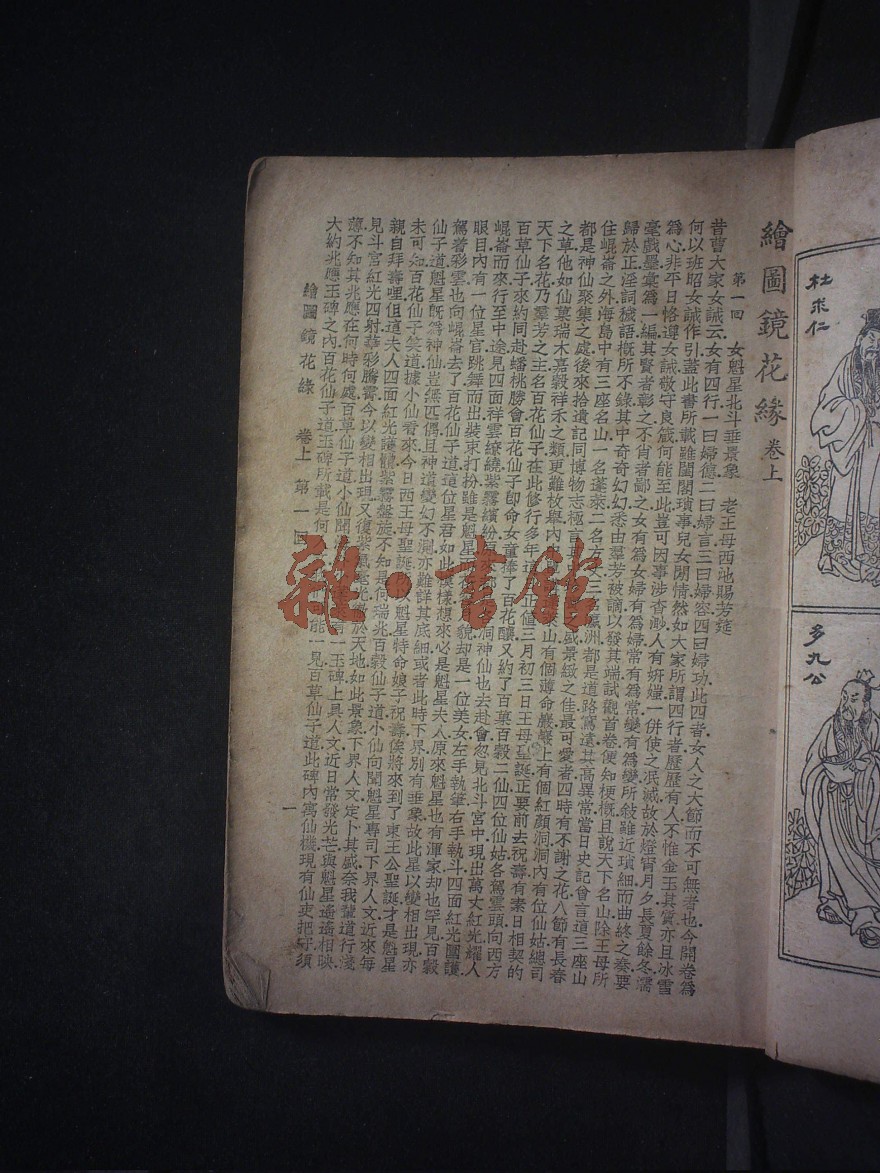 杜求仁
多九公
繪圖鏡花緣 卷上
第一回 女魁星北斗垂景象 老王母西池賜芳筵
昔曹大家女誡云女有四行一曰婦德二曰婦言三曰婦容四曰婦功此四者女人之大節而不可無者也今開卷爲
何以班昭女誡作引蓋此書所載雖閨閣瑣事兒女閒情然如大家所謂四行者歷歷有人不惟金玉其質亦且冰雪
爲心非平日恪遵女誡敬守良箴何能至此豈可因事涉杳渺人有妍媸一併使之泯滅故於燈宵月夕長夏餘冬濡
毫戲墨彙爲一編其賢者彰之不肖者鄙之女有爲女婦有爲婦常有爲常變有爲變所敍雖近瑣細而曲終之奏要
歸於正淫詞穢語槪所不錄其中奇奇幻幻悉由羣芳被謫以發其端試觀首卷便知梗槪且說天下名山除王母所
住崐崙之外海島中有三座名山一名蓬萊二名方丈三瀛洲都是道路窵遠其高異常當日史記曾言這三座山
都是神仙聚集之處後來拾遺記同博物志極言其盛景緻之佳最可愛者四時有不謝之花八節有長春
之草他如仙菓瑞木嘉穀祥禾之類更難故舉內山有個薄命巖巖上有個紅顏洞洞內有位仙姑總司
天下名花乃羣芳之主名百花仙子在此修行多年這正値三月初三日王母聖誕正要前去祝壽有素日相契的
百草仙子來約同赴蟠桃勝會百花仙子卽命女童捧了百花釀又約了百菓百穀二仙四位仙姑各駕雲頭向西方
崐崙而來行至中途見四面祥雲繚繞紫霧繽紛洞神仙也去赴會忽見北斗宮中現出萬丈紅光耀人
眼目內有一位星官跳舞而出裝束打扮雖是魁星而貌却是一位美女左手執筆右手執斗四面紅光圍護
駕着彩雲也向崐崙去了百花仙子道這位星君如此模樣想來必是魁星夫人原來魁星也有渾家却也罕見百穀
仙子道魁星旣爲神仙豈無匹偶且神道變幻不測亦難詳其底細或者此時下界別有垂象故此星以變相出現亦
未可知百花仙子笑道據小仙看來今日西王母聖誕魁星特命娘子祝壽俟將來到了東王公聖誕才是魁星
親自拜壽哩但這夫人四面紅光護體紫霧盤旋不知是何瑞兆百穀仙子道小仙向聞魁星專司下界人文近來每
見斗宮紅光四射華彩騰霄今以變相出現又復紫氣毫光徹於天地如此景象下界人文定卜其盛奈我輩道行淺
薄不知其兆應在何時何處百草仙子道小仙聞有一玉碑上具人文近日常發光芒與魁星遙遙相映
大約兆應玉碑之內百花仙子道玉碑所載是何能一見百草仙子道此碑內寓仙機現有仙吏把守須
繪圖鏡花緣 卷上 第一回 一
雜·書舘